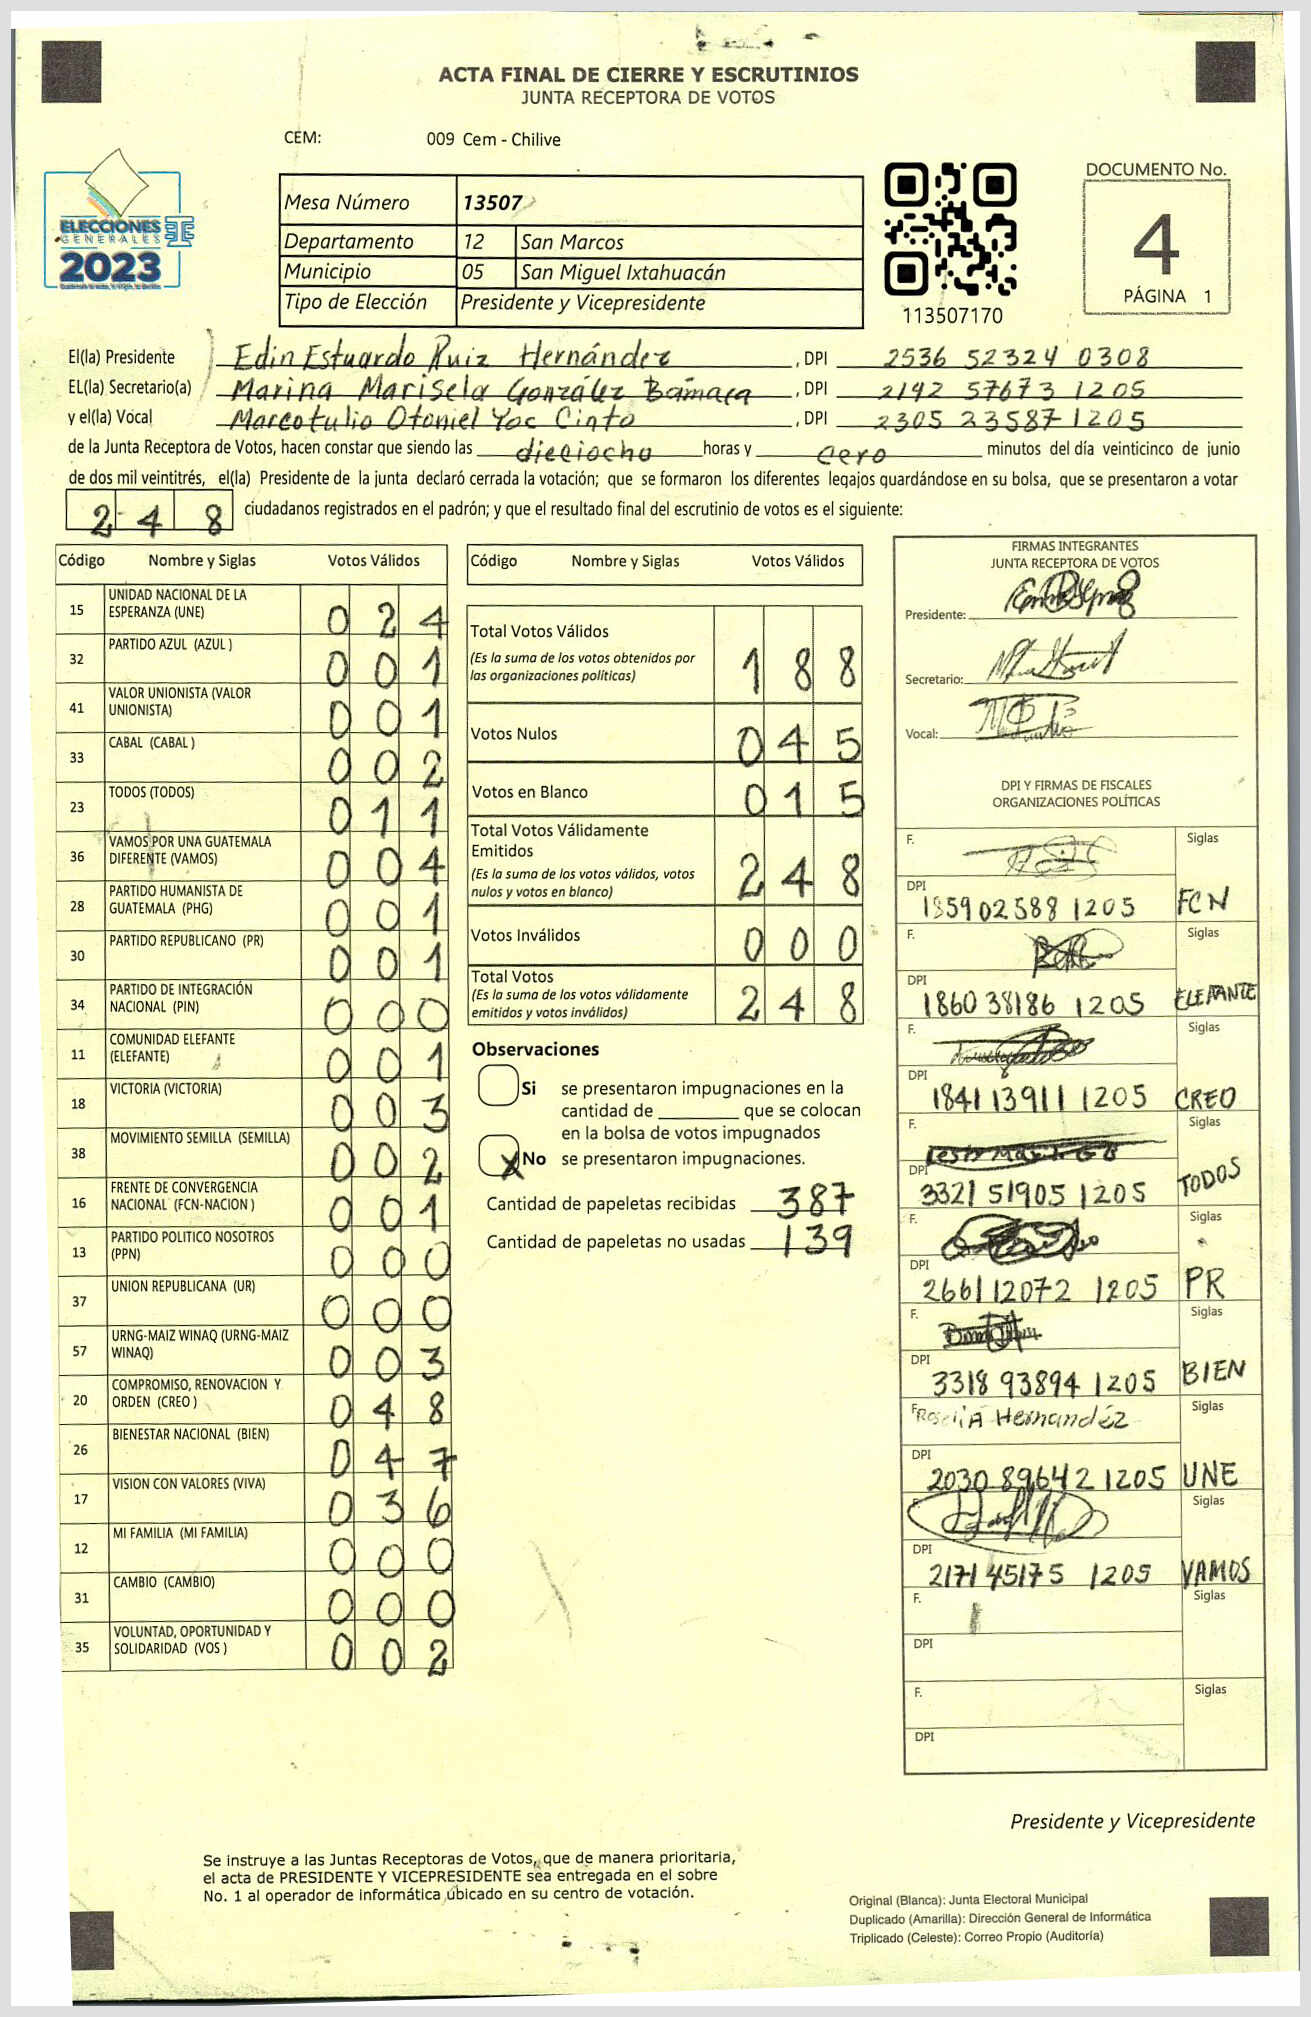 ACTA FINAL DE CIERRE Y ESCRUTINIOS
JUNTA RECEPTORA DE VOTOS
CEM: 009 Cem - Chilive
ELECCIONES
GENERALES
2023
Mesa Número 13507
Departamento 12 San Marcos
Municipio 05 San Miguel Ixtahuacán
Tipo de Elección Presidente y Vicepresidente
113507170
DOCUMENTO No.
4
PÁGINA 1
El(la) Presidente Edin Estuardo Ruiz Hernández, DPI 2536 52324 0308
EL(la) Secretario(a) Marina Marisela González Bámaca, DPI 2192 57673 1205
y el(la) Vocal Marcotulio Otoniel Yoc Cinto, DPI 2305 23587 1205
de la Junta Receptora de Votos, hacen constar que siendo las dieciocho horas y cero minutos del día veinticinco de junio
de dos mil veintitrés, el(la) Presidente de la junta declaró cerrada la votación; que se formaron los diferentes legajos guardándose en su bolsa, que se presentaron a votar
248 ciudadanos registrados en el padrón; y que el resultado final del escrutinio de votos es el siguiente:
Código Nombre y Siglas Votos Válidos
15 UNIDAD NACIONAL DE LA
ESPERANZA (UNE) 024
32 PARTIDO AZUL (AZUL ) 001
41 VALOR UNIONISTA (VALOR
UNIONISTA) 001
33 CABAL (CABAL ) 002
23 TODOS (TODOS) 011
36 VAMOS POR UNA GUATEMALA
DIFERENTE (VAMOS) 004
28 PARTIDO HUMANISTA DE
GUATEMALA (PHG) 001
30 PARTIDO REPUBLICANO (PR) 001
34 PARTIDO DE INTEGRACIÓN
NACIONAL (PIN) 000
11 COMUNIDAD ELEFANTE
(ELEFANTE) 001
18 VICTORIA (VICTORIA) 003
38 MOVIMIENTO SEMILLA (SEMILLA) 002
16 FRENTE DE CONVERGENCIA
NACIONAL (FCN-NACION ) 001
13 PARTIDO POLITICO NOSOTROS
(PPN) 000
37 UNION REPUBLICANA (UR) 000
57 URNG-MAIZ WINAQ (URNG-MAIZ
WINAQ) 003
20 COMPROMISO, RENOVACION Y
ORDEN (CREO ) 048
26 BIENESTAR NACIONAL (BIEN) 047
17 VISION CON VALORES (VIVA) 036
12 MI FAMILIA (MI FAMILIA) 000
31 CAMBIO (CAMBIO) 000
35 VOLUNTAD, OPORTUNIDAD Y
SOLIDARIDAD (VOS ) 002
Código Nombre y Siglas Votos Válidos
Total Votos Válidos
(Es la suma de los votos obtenidos por
las organizaciones políticas) 188
Votos Nulos 045
Votos en Blanco 015
Total Votos Válidamente
Emitidos
(Es la suma de los votos válidos, votos
nulos y votos en blanco) 248
Votos Inválidos 000
Total Votos
(Es la suma de los votos válidamente
emitidos y votos inválidos) 248
Observaciones
Si se presentaron impugnaciones en la
cantidad de ________ que se colocan
en la bolsa de votos impugnados
X No se presentaron impugnaciones.
Cantidad de papeletas recibidas 387
Cantidad de papeletas no usadas 139
FIRMAS INTEGRANTES
JUNTA RECEPTORA DE VOTOS
Presidente:
Secretario:
Vocal:
DPI Y FIRMAS DE FISCALES
ORGANIZACIONES POLÍTICAS
F. Siglas
DPI
185902588 1205 FCN
F. Siglas
DPI
1860 38186 1205 ELEFANTE
F. Siglas
DPI
1841 13911 1205 CREO
F. Siglas
DPI
3321 51905 1205 TODOS
F. Siglas
DPI
2661 12072 1205 PR
F. Siglas
DPI
3318 93894 1205 BIEN
F. Roselia Hernandéz Siglas
DPI
2030 89642 1205 UNE
F. Siglas
DPI
2171 45175 1205 VAMOS
F. Siglas
DPI
F. Siglas
DPI
Presidente y Vicepresidente
Se instruye a las Juntas Receptoras de Votos, que de manera prioritaria,
el acta de PRESIDENTE Y VICEPRESIDENTE sea entregada en el sobre
No. 1 al operador de informática ubicado en su centro de votación.
Original (Blanca): Junta Electoral Municipal
Duplicado (Amarilla): Dirección General de Informática
Triplicado (Celeste): Correo Propio (Auditoría)